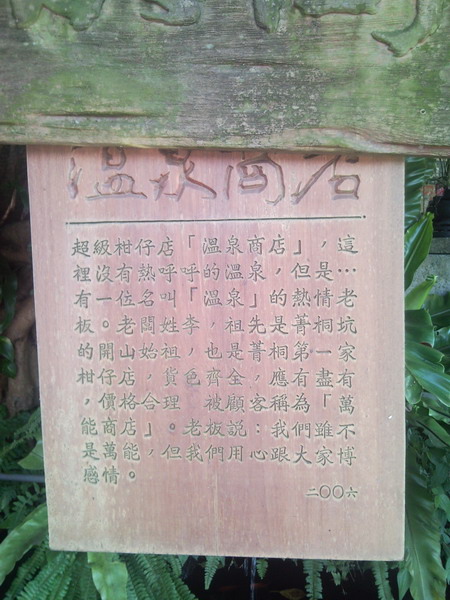 溫泉商店
超級柑仔店「溫泉商店」，這
裡沒有熱呼呼的溫泉，但是…
有一位名叫「溫泉」的熱情老
板。老闆姓李，祖先是菁桐坑
的開山始祖，也是菁桐第一家
柑仔店，貨色齊全，應有盡有
，價格合理 被顧客稱為「萬
能商店」。老板說：我們雖不
是萬能，但我們用心跟大家博
感情。
二〇〇六